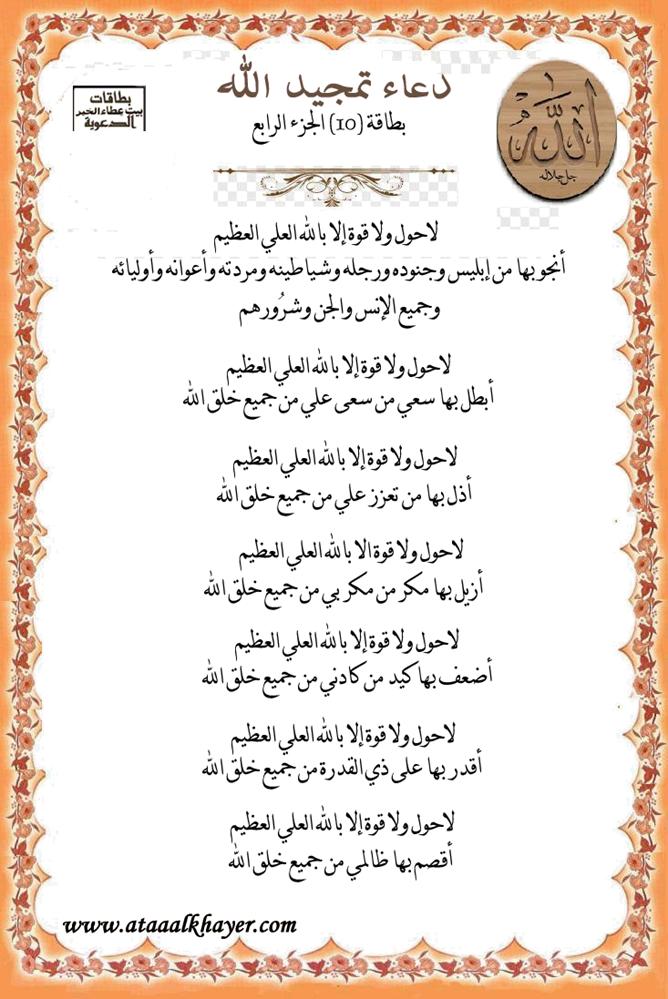 دعاء تمجيد الله
بطاقة (10) الجزء الرابع
بطاقات
بيت عطاء الخير
الدعوية
الله
جل جلاله
لاحول ولا قوة إلا بالله العلي العظيم
أنجو بها من إبليس وجنوده ورجله وشياطينه ومردته وأعوانه وأوليائه
وجميع الإنس والجن وشرُورهم
لاحول ولا قوة إلا بالله العلي العظيم
أبطل بها سعي من سعى علي من جميع خلق الله
لاحول ولا قوة إلا بالله العلي العظيم
أذل بها من تعزز علي من جميع خلق الله
لاحول ولا قوة الا بالله العلي العظيم
أزيل بها مكر من مكر بي من جميع خلق الله
لاحول ولا قوة إلا بالله العلي العظيم
أضعف بها كيد من كادني من جميع خلق الله
لاحول ولا قوة إلا بالله العلي العظيم
أقدر بها على ذي القدرة من جميع خلق الله
لاحول ولا قوة إلا بالله العلي العظيم
أقصم بها ظالمي من جميع خلق الله
www.ataaalkhayer.com